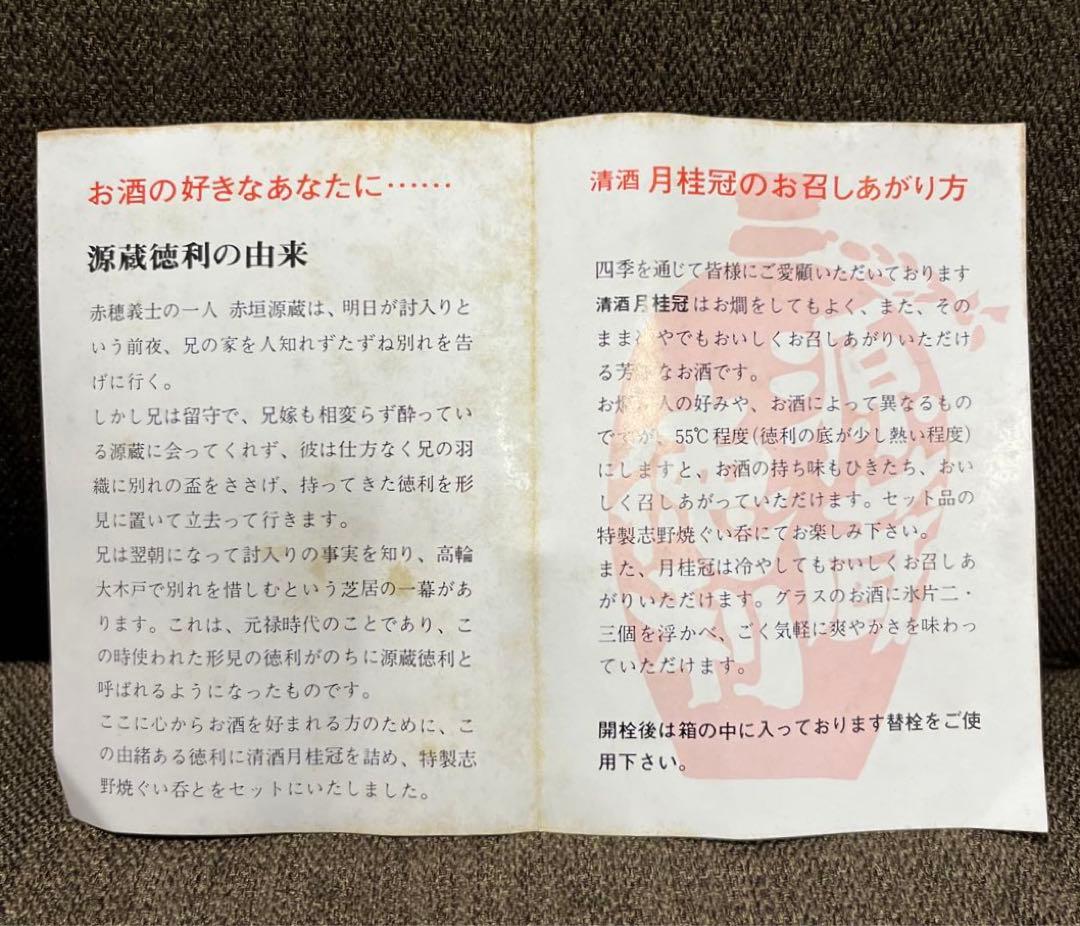 お酒の好きなあなたに……
源蔵徳利の由来
赤穂義士の一人 赤垣源蔵は、明日が討入りと
いう前夜、兄の家を人知れずたずね別れを告
げに行く。
しかし兄は留守で、兄嫁も相変らず酔ってい
る源蔵に会ってくれず、彼は仕方なく兄の羽
織に別れの盃をささげ、持ってきた徳利を形
見に置いて立去って行きます。
兄は翌朝になって討入りの事実を知り、高輪
大木戸で別れを惜しむという芝居の一幕があ
ります。これは、元禄時代のことであり、こ
の時使われた形見の徳利がのちに源蔵徳利と
呼ばれるようになったものです。
ここに心からお酒を好まれる方のために、こ
の由緒ある徳利に清酒月桂冠を詰め、特製志
野焼ぐい呑とをセットにいたしました。
清酒 月桂冠のお召しあがり方
四季を通じて皆様にご愛顧いただいております
清酒月桂冠はお燗をしてもよく、また、その
ままひやでもおいしくお召しあがりいただけ
る芳 なお酒です。
お燗 人の好みや、お酒によって異なるもの
ですが、55℃程度(徳利の底が少し熱い程度)
にしますと、お酒の持ち味もひきたち、おい
しく召しあがっていただけます。セット品の
特製志野焼ぐい呑にてお楽しみ下さい。
また、月桂冠は冷やしてもおいしくお召しあ
がりいただけます。グラスのお酒に氷片二・
三個を浮かべ、ごく気軽に爽やかさを味わっ
ていただけます。
開栓後は箱の中に入っております替栓をご使
用下さい。
源蔵徳利